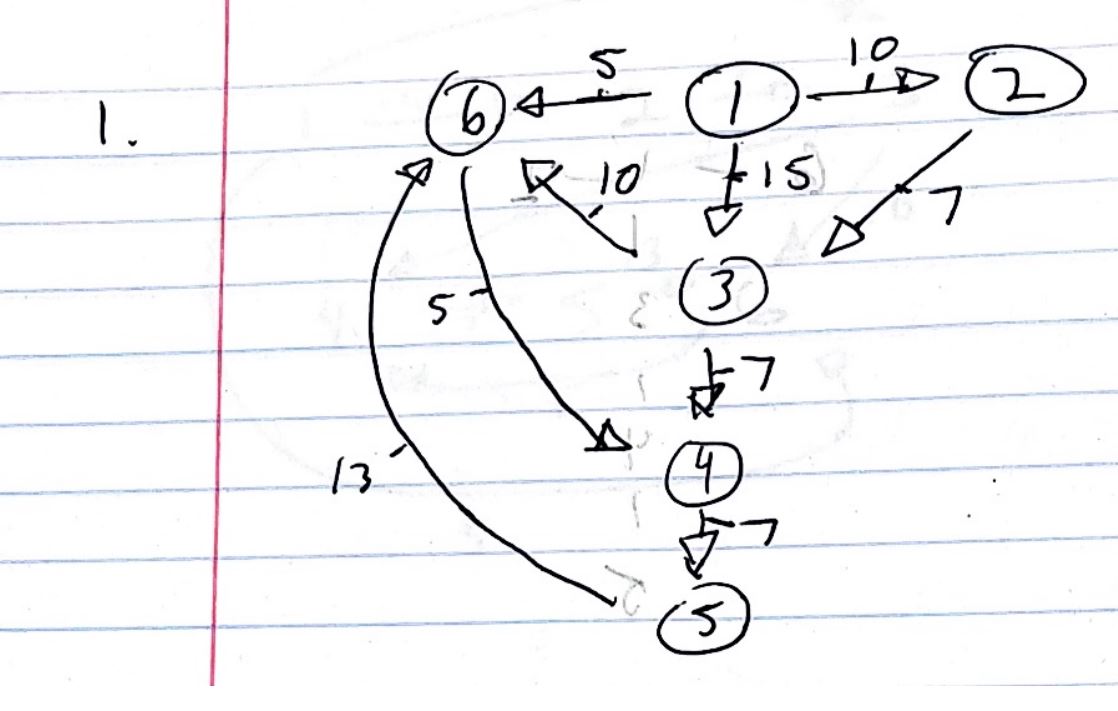 5 10
1. 6 1 2
10 15 7
3
5
7
4
13
7
5